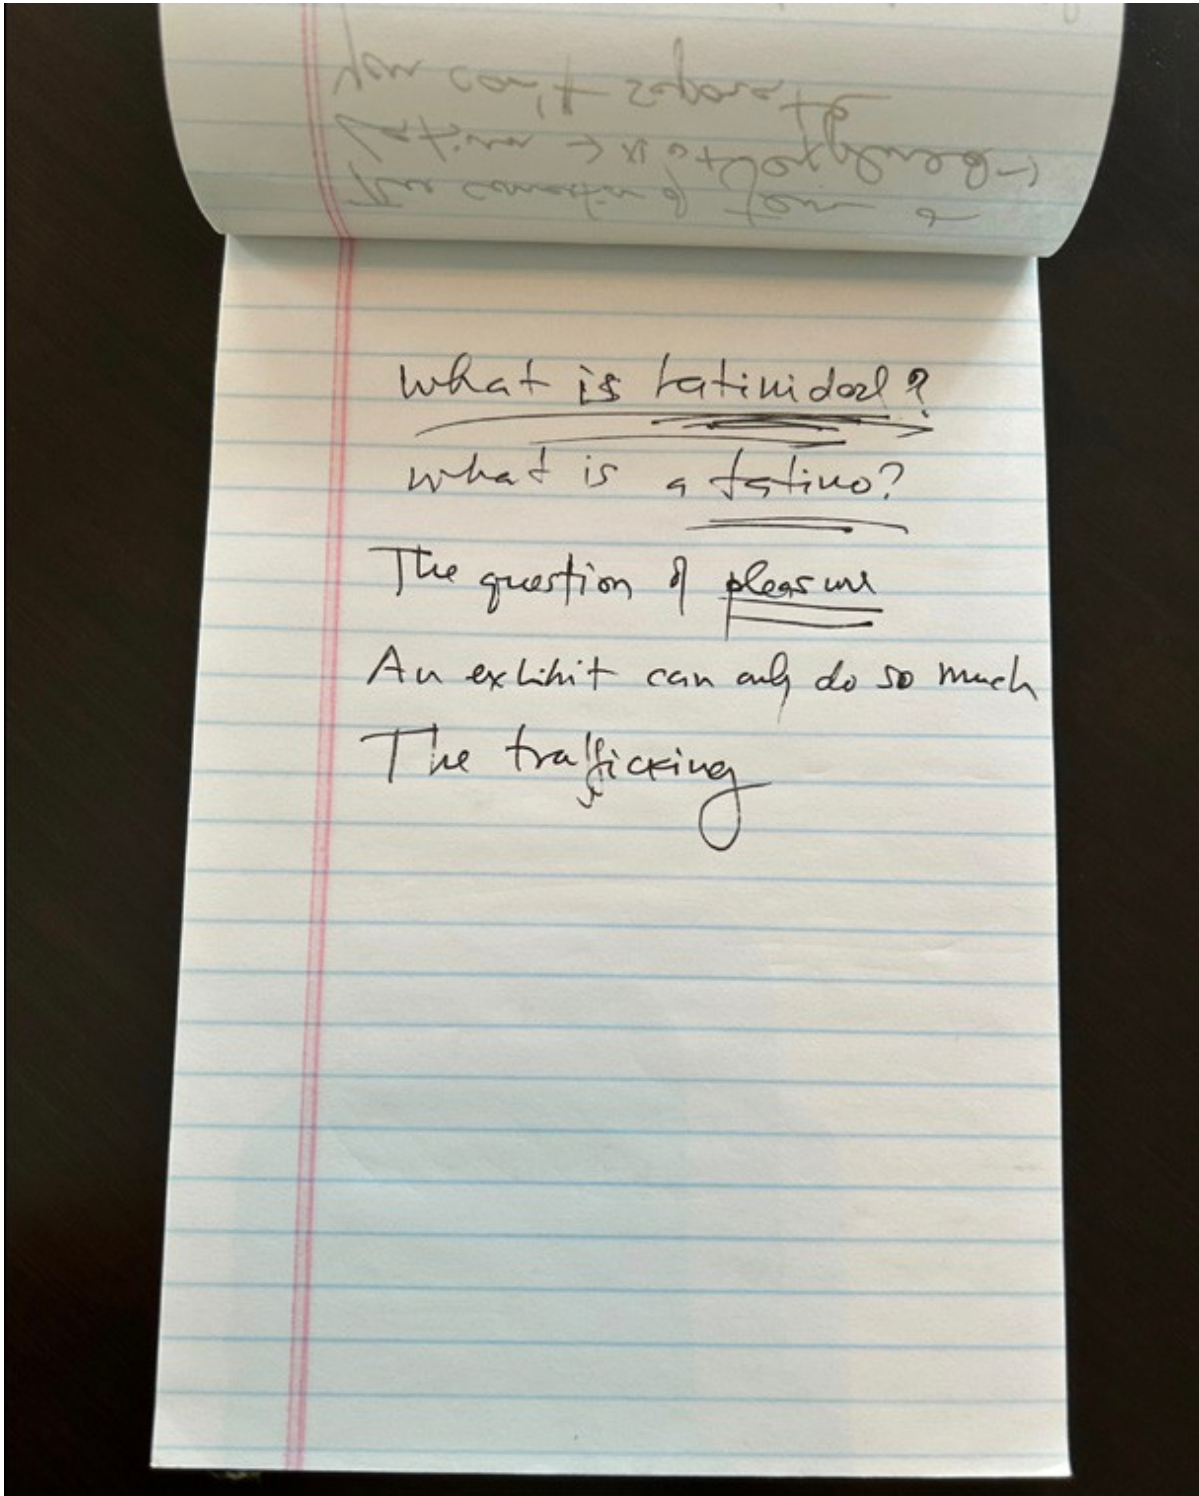 you can't separate
The
What is Latinidad?
What is a Latino?
The question of pleasure
An exhibit can only do so much
The trafficking